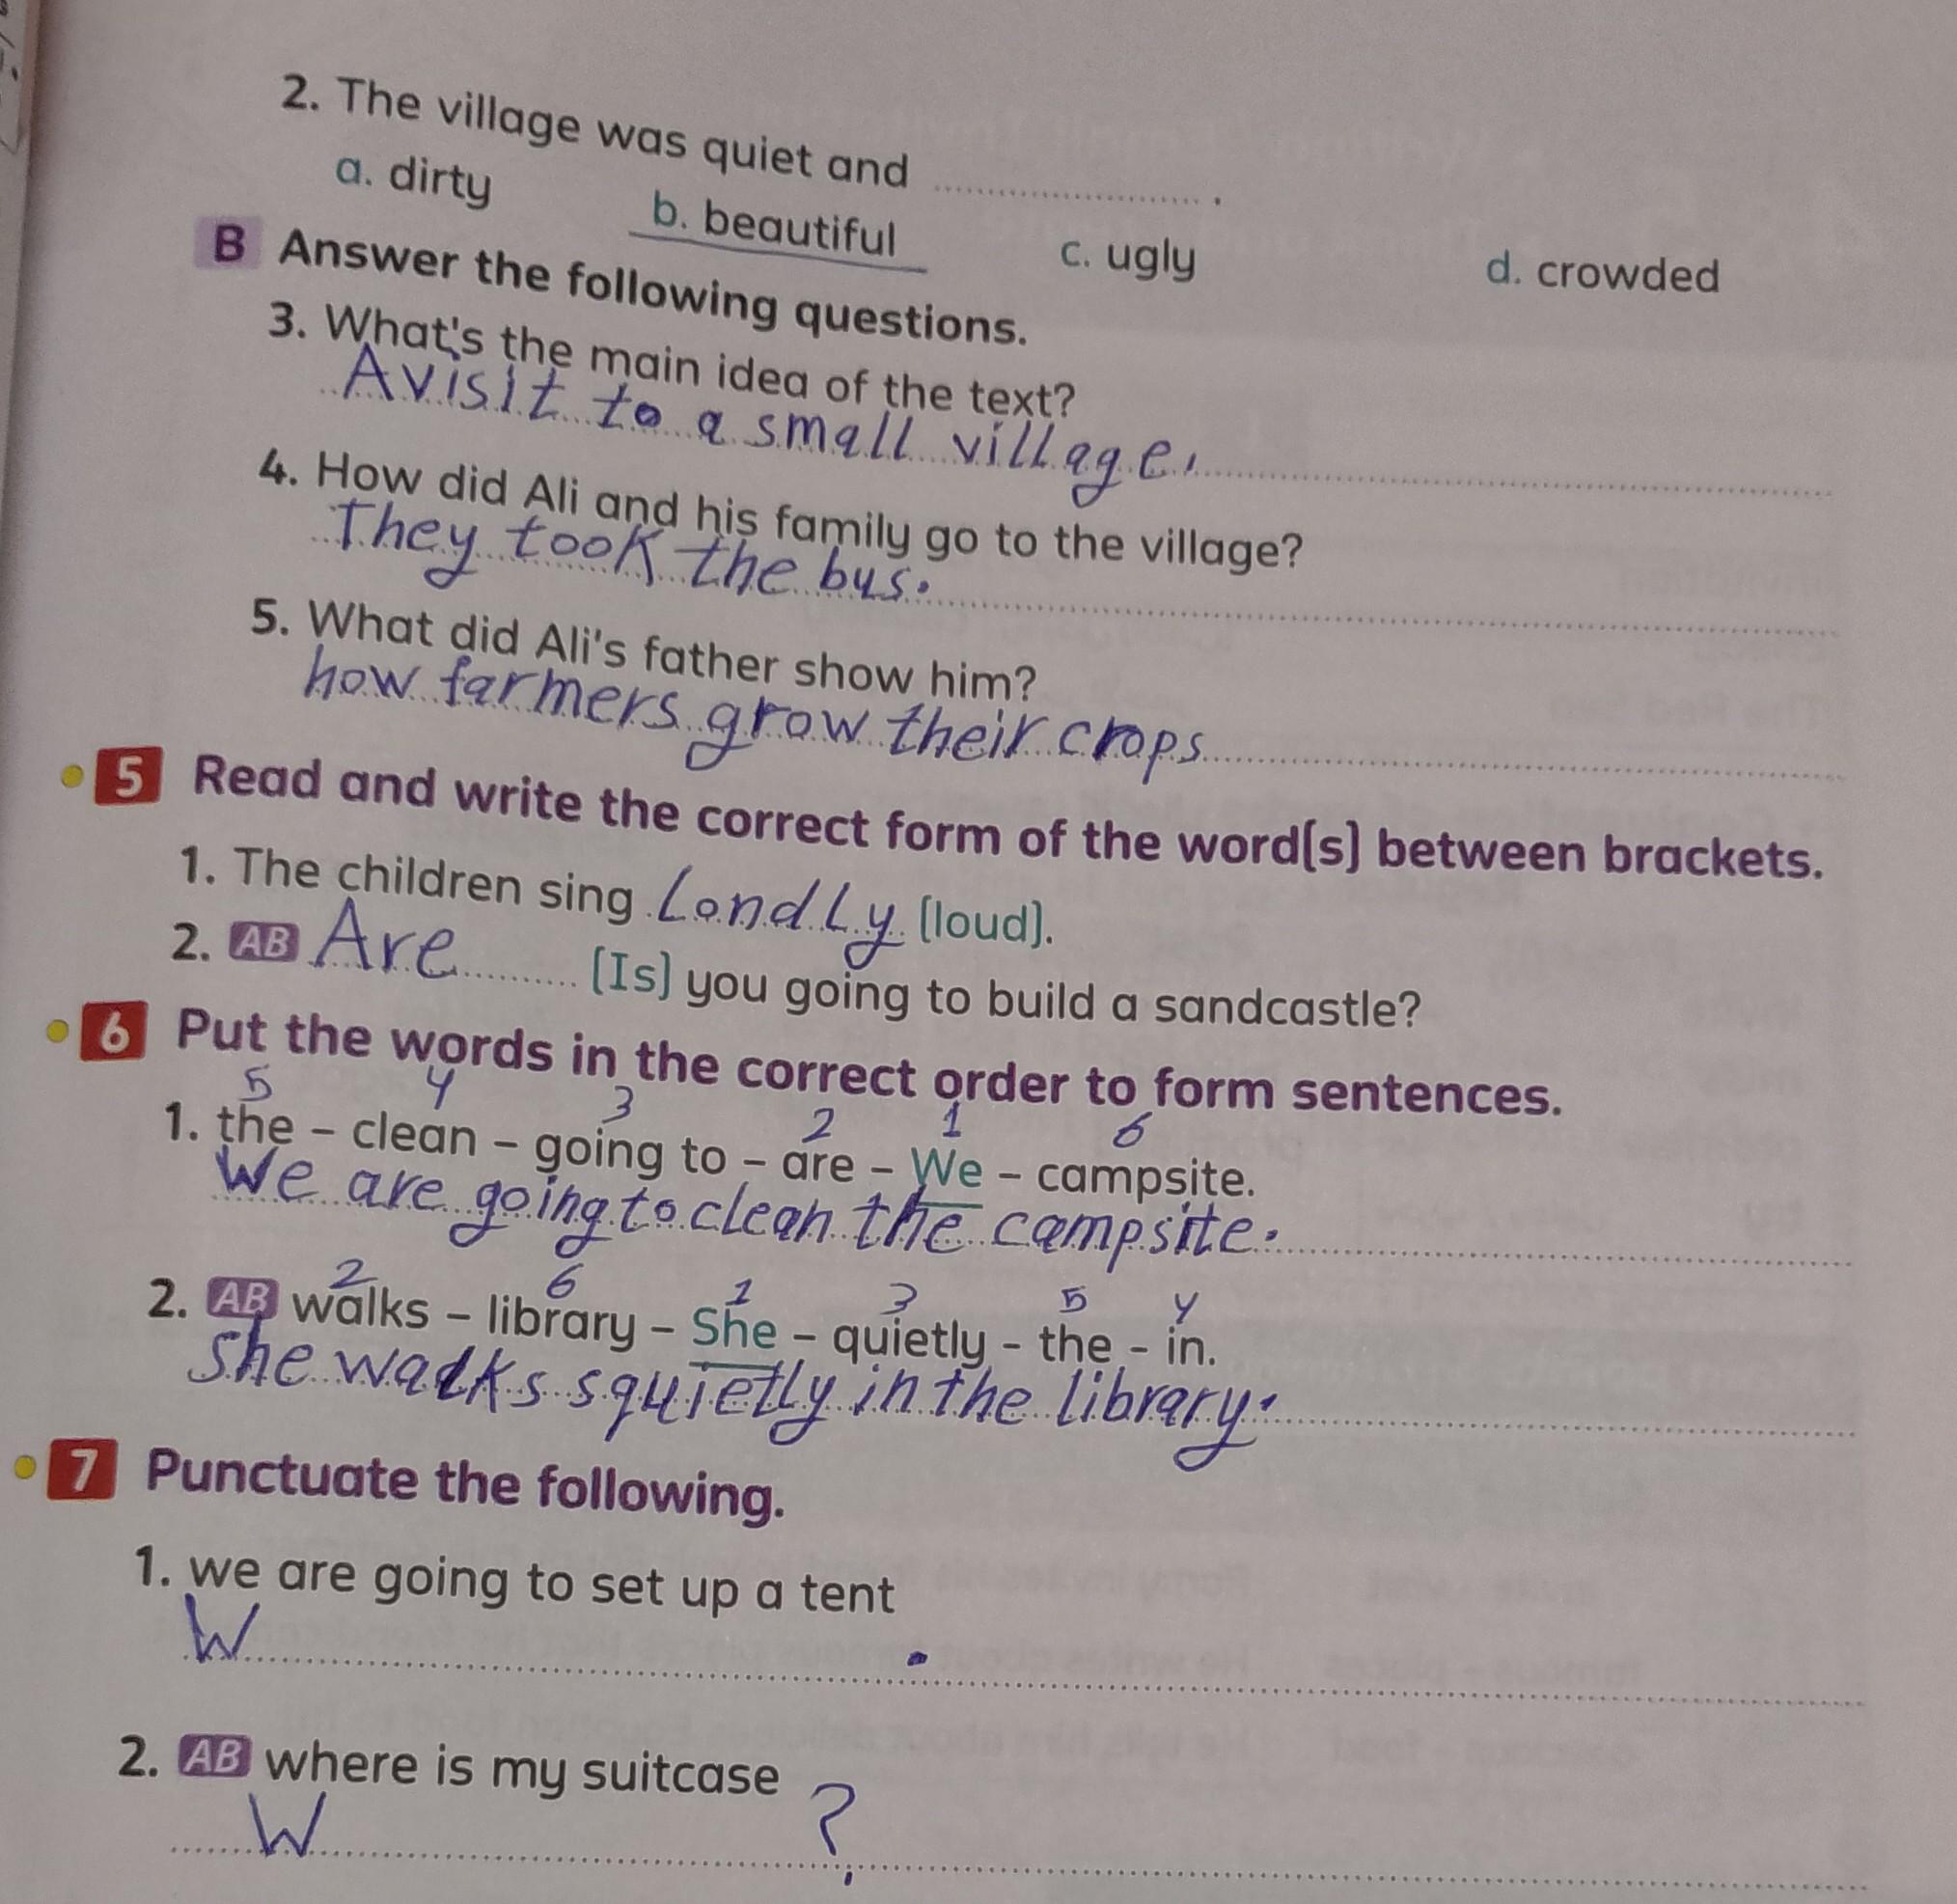 2. The village was quiet and .................... .
a. dirty b. beautiful c. ugly d. crowded
B Answer the following questions.
3. What's the main idea of the text?
A visit to a small village.
4. How did Ali and his family go to the village?
They took the bus.
5. What did Ali's father show him?
how farmers grow their crops
5 Read and write the correct form of the word(s) between brackets.
1. The children sing Londly (loud).
2. AB Are (Is) you going to build a sandcastle?
6 Put the words in the correct order to form sentences.
5 4 3 2 1 6
1. the – clean – going to – are – We – campsite.
We are going to clean the campsite.
2 6 1 3 5 4
2. AB walks – library – She – quietly - the - in.
She walks squietly in the library.
7 Punctuate the following.
1. we are going to set up a tent
W .
2. AB where is my suitcase
W ?